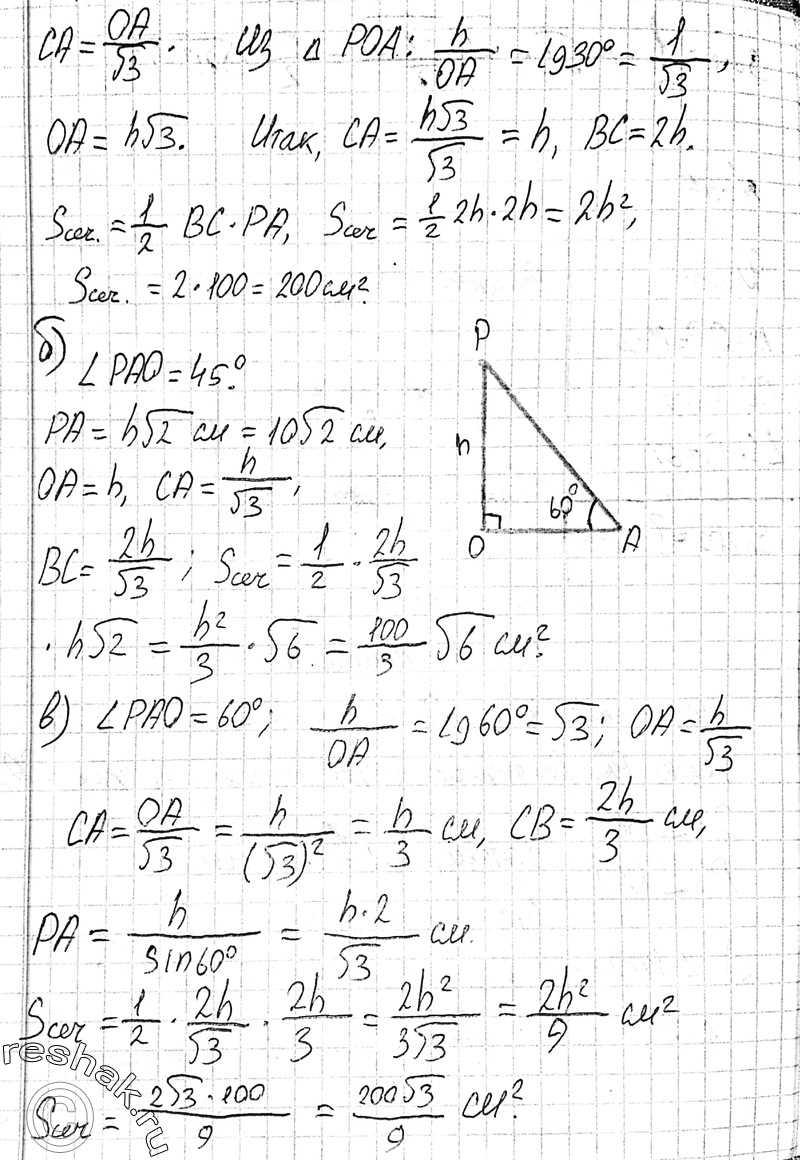 CA = OA/√3. Из Δ POA: h/OA = tg30° = 1/√3,
OA = h√3. Итак, CA = h√3/√3 = h, BC = 2h.
Sсеч. = 1/2 BC · PA, Sсеч = 1/2 2h · 2h = 2h²,
Sсеч. = 2 · 100 = 200 см².
б) ∠PAO = 45°.
PA = h√2 см = 10√2 см,
OA = h, CA = h/√3,
BC = 2h/√3; Sсеч = 1/2 · 2h/√3
· h√2 = h²/3 · √6 = 100/3 √6 см².
P
h
60°
O
A
в) ∠PAO = 60°; h/OA = tg60° = √3; OA = h/√3
CA = OA/√3 = h/(√3)² = h/3 см, CB = 2h/3 см,
PA = h/sin60° = h·2/√3 см.
Sсеч = 1/2 · 2h/√3 · 2h/3 = 2h²/3√3 = 2h²/9 см²
Sсеч = 2√3 · 100/9 = 200√3/9 см².
reshak.ru
©